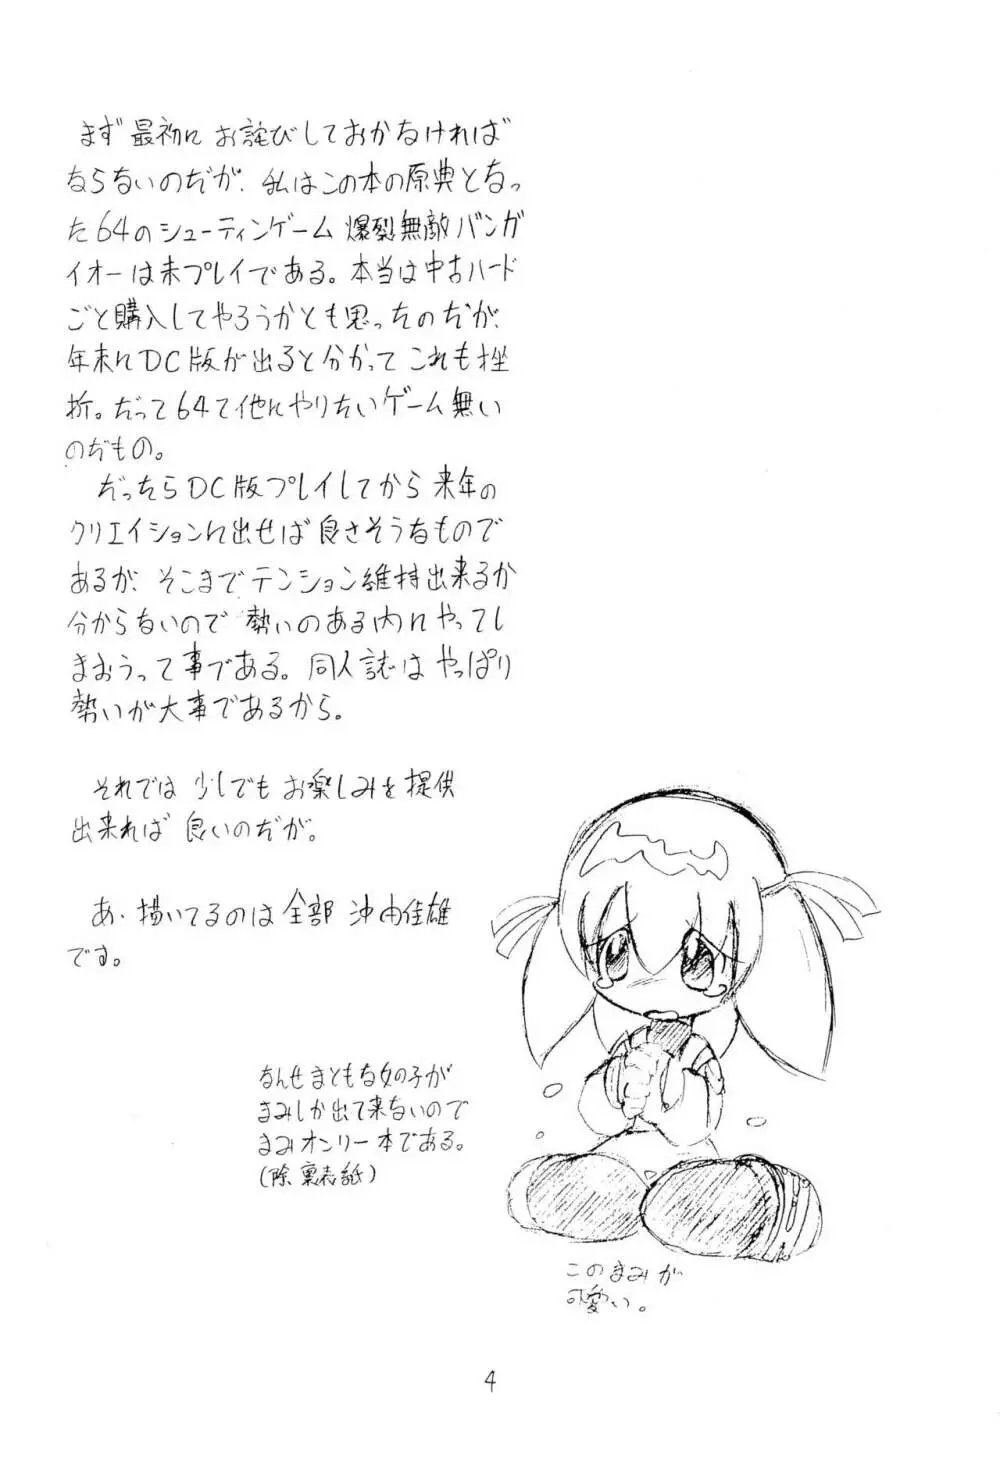 まず最初に お詫びしておかなければ
ならないのだが、私はこの本の原典となっ
た64のシューティンゲーム 爆裂無敵バンガ
イオーは未プレイである。本当は中古ハード
ごと購入してやろうかとも思ったのだが、
年末にDC版が出ると分かって これも挫
折。だって64で他にやりたいゲーム無い
のだもの。
だったらDC版プレイしてから来年の
クリエイションに出せば良さそうなもので
あるが、そこまでテンション維持出来るか
分からないので 勢いのある内にやってし
まおうって事である。同人誌はやっぱり
勢いが大事であるから。
それでは少しでもお楽しみを提供
出来れば良いのだが。
あ、描いてるのは全部 沖由佳雄
です。
なんせまともな女の子が
まみしか出て来ないので
まみオンリー本である。
(除裏表紙)
このまみが
可愛い。
4